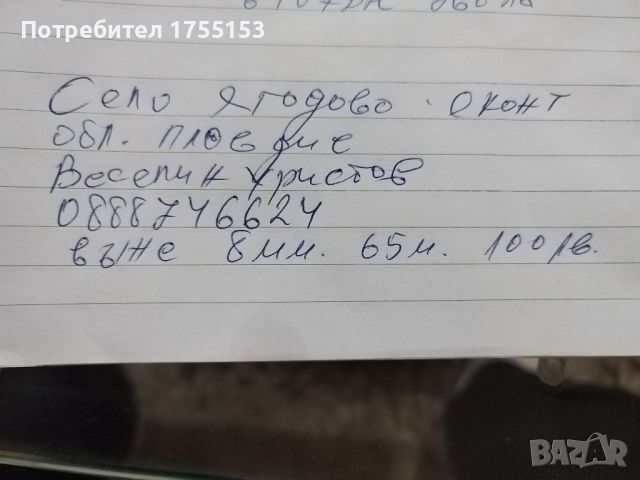 Потребител 1755153
Село Ягодово. еконт
обл. Пловдив
Веселин Христов
0888746624
въже 8мм. 65м. 100лв.
BAZAR